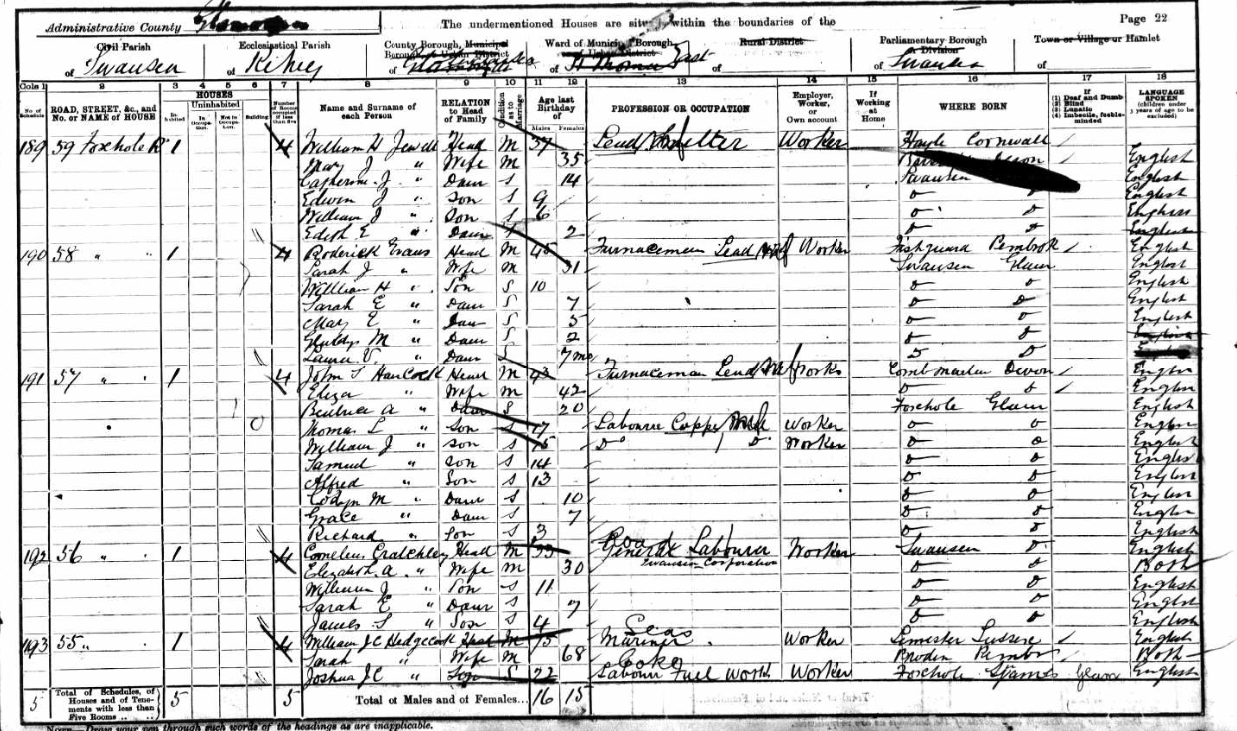 Administrative County Glamorgan The undermentioned Houses are situated within the boundaries of the Page 22
Civil Parish Ecclesiastical Parish County Borough, Municipal Ward of Municipal Borough Rural District Parliamentary Borough Town or Village or Hamlet
of Swansea of Kilvey of Swansea of St Thomas East of of Swansea of
Cols 1 2 3 4 5 6 7 8 9 10 11 12 13 14 15 16 17 18
No. of Schedule ROAD, STREET, &c., and No. or NAME of HOUSE HOUSES Inhabited Uninhabited In Occupation Not in Occupation Building Name and Surname of each Person RELATION to Head of Family Condition as to Marriage Age last Birthday of Males Females PROFESSION OR OCCUPATION Employer, Worker, or Own account If Working at Home WHERE BORN If (1) Deaf and Dumb (2) Blind (3) Lunatic (4) Imbecile, feeble-minded LANGUAGE SPOKEN (children under 3 years of age to be excluded)
189 59 Foxhole Rd 1 4 William H Jewell Head M 37 Lead Smelter Worker Hayle Cornwall
Mary J " Wife M 35 English
Catherine J " Daur S 14 Swansea English
Edwin J " Son S 9 Do Do English
William J " Son S 6 Do Do English
Edith E " Daur S 2 Do Do English
190 58 " " 1 4 Roderick Evans Head M 45 Furnaceman Lead Worker Fishguard Pembrok English
Sarah J " Wife M 31 Swansea Glam English
William H " Son S 10 Do Do English
Sarah E " Daur S 7 Do Do English
May E " Daur S 5 Do Do English
Gladys M " Daur S 2 Do Do English
Laura V " Daur S 7 mo Do Do English
191 57 " " 1 4 John S Hancock Head M 43 Furnaceman Lead Works Comb Martin Devon English
Eliza " Wife M 42 Do Do English
Beatrice A " Daur S 20 Foxhole Glam English
Thomas L " Son S 17 Labourer Copper Worker Do Do English
William J " Son S 15 Do Do Worker Do Do English
Samuel " Son S 14 Do Do English
Alfred " Son S 13 Do Do English
M " Daur S 10 Do Do English
Grace " Daur S 7 Do Do English
Richard " Son S 3 Do Do English
192 56 " " 1 4 Cornelius Cratchley Head M 33 Road General Labourer Worker Swansea Do English
Elizabeth A " Wife M 30 Swansea Corporation Do Do Both
William J " Son S 11 Do Do English
Sarah E " Daur S 7 Do Do English
James S " Son S 4 Do Do English
193 55 " " 1 4 William J C Hedgecock Head M 75 Seas Mariner Worker Sussex English
Sarah " Wife M 68 Pembr Both
Joshua J C " Son S 22 Coke Labour Fuel Work Worker Foxhole Glam English
5 Total of Schedules, of Houses and of Tenements with less than Five Rooms 5 5 Total of Males and of Females... 16 15
NOTE—Draw your pen through such words of the headings as are inapplicable.